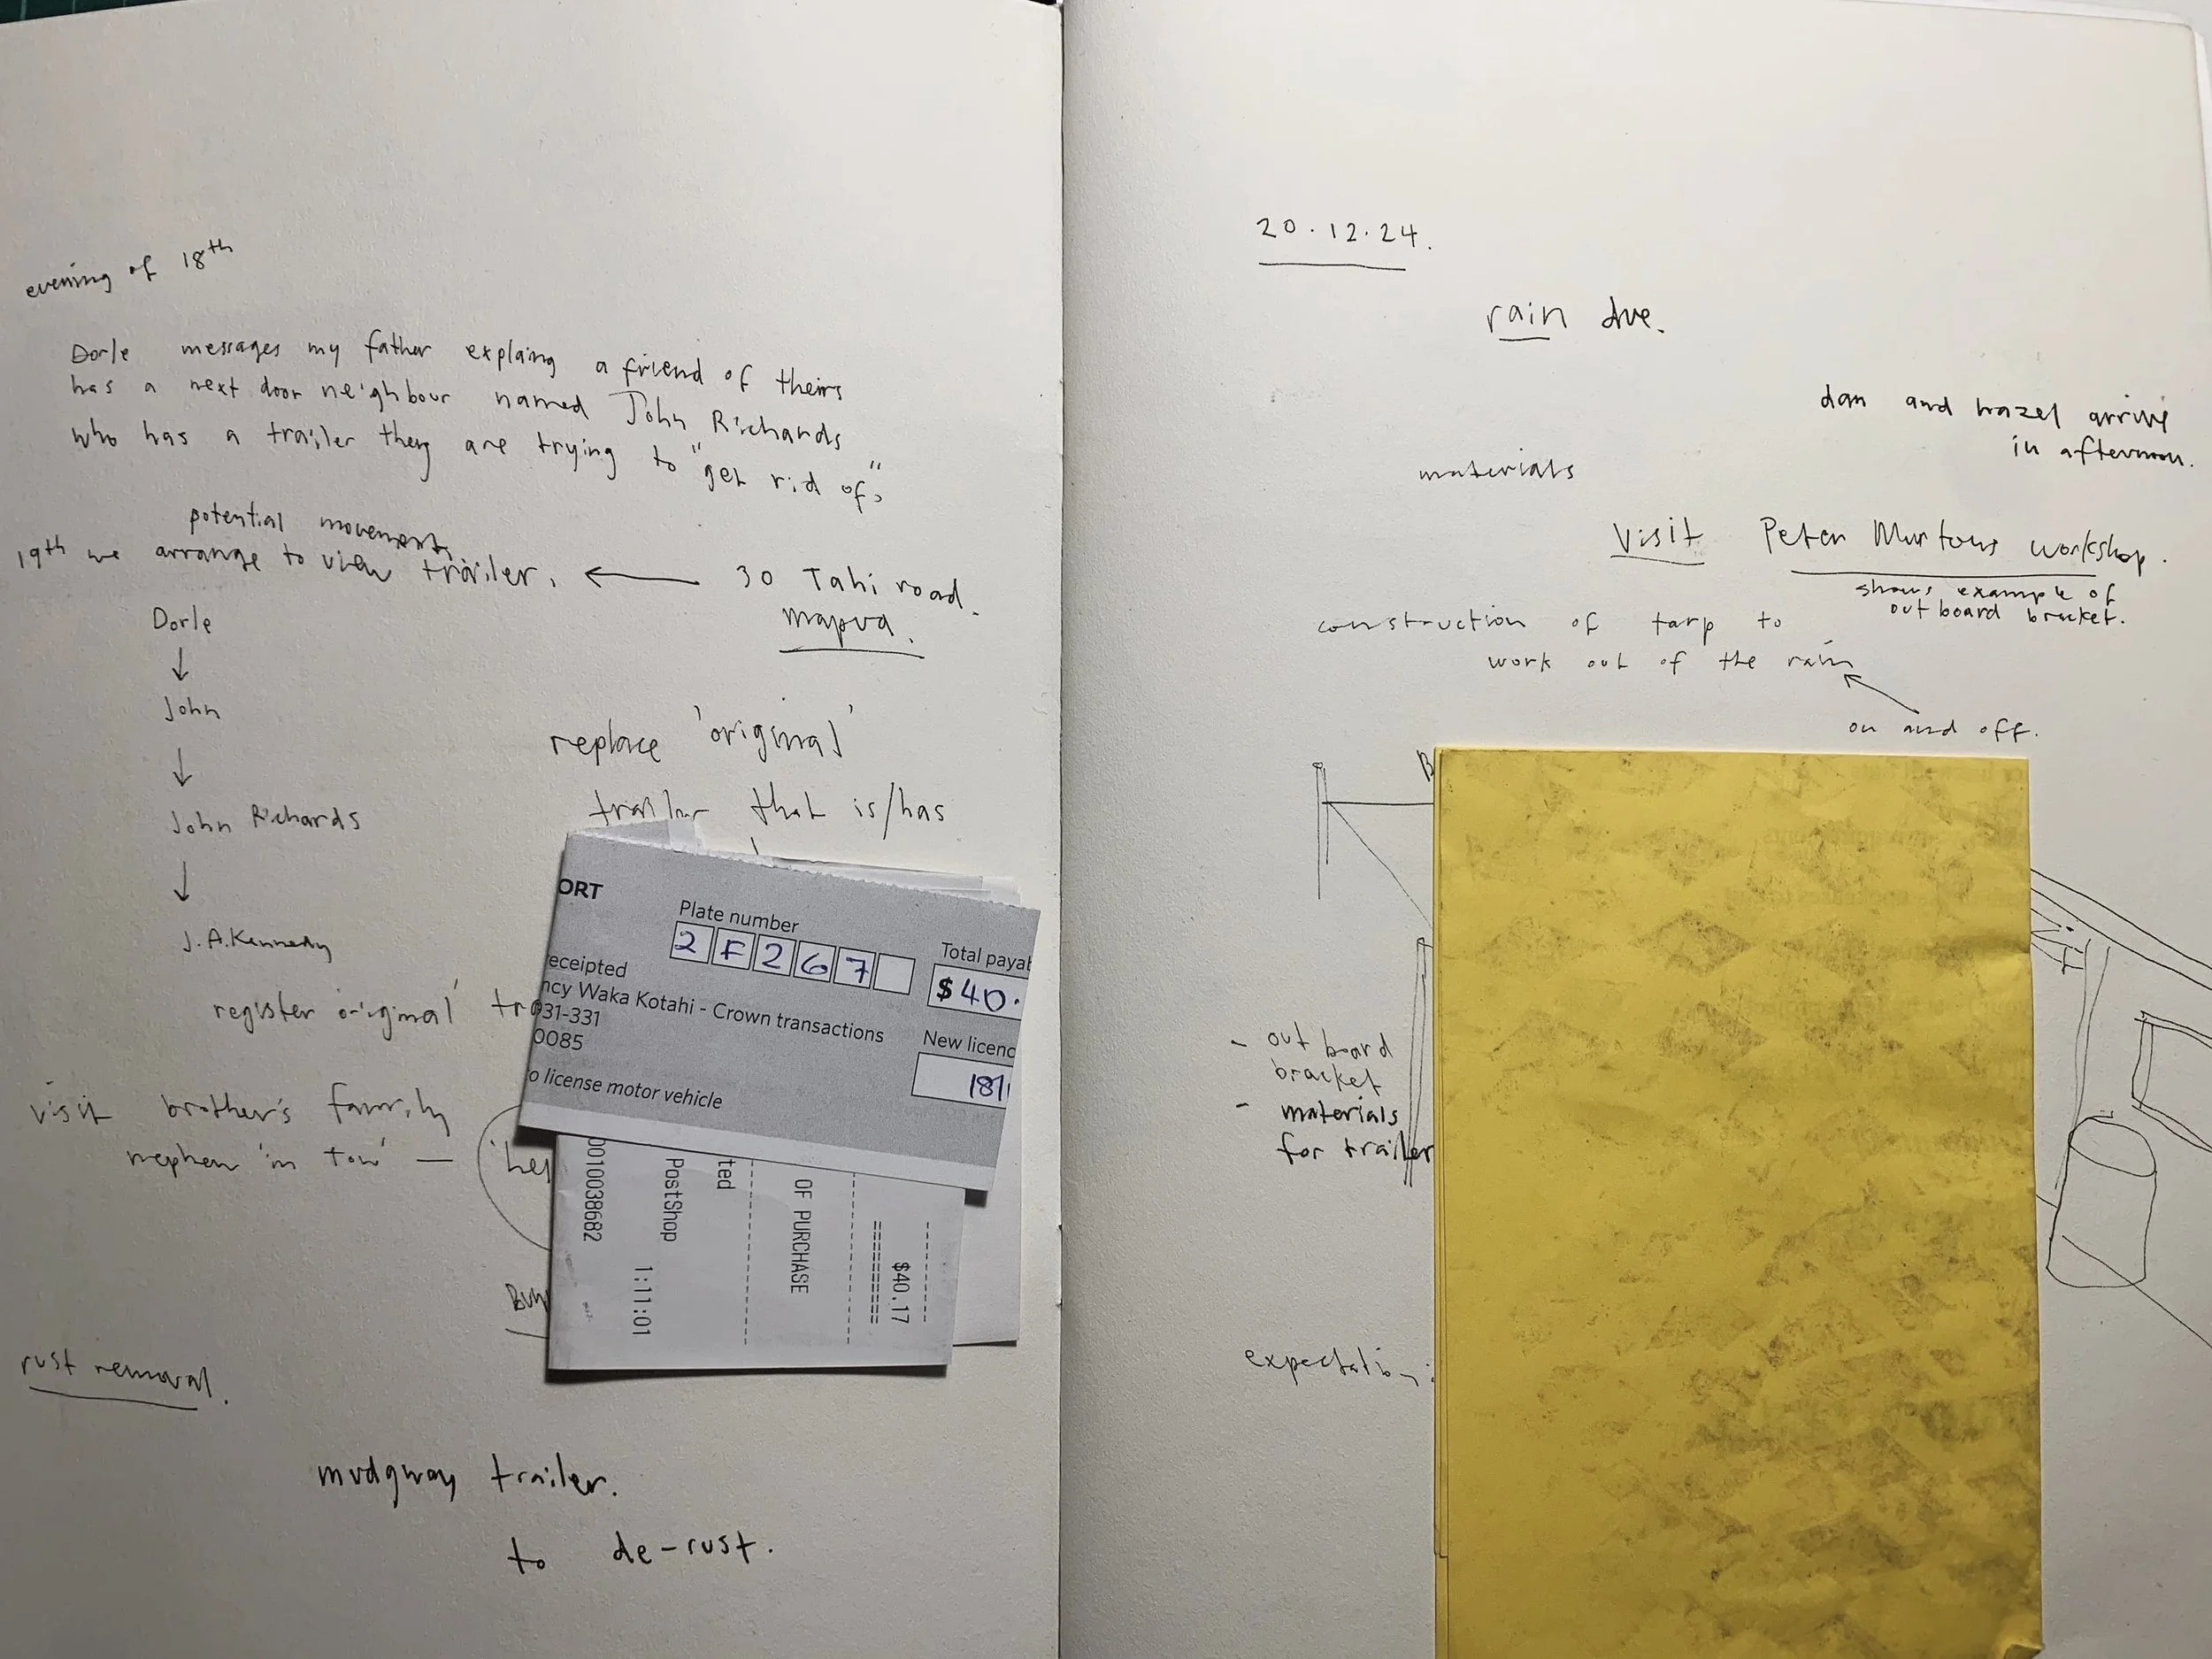 evening of 18th
Dorle messages my father explaing a friend of theirs
has a next door neighbour named John Richards
who has a trailer they are trying to "get rid of"
potential movement
19th we arrange to view trailer.
30 Tahi road.
mapua.
Dorle
↓
John
↓
John Richards
↓
J.A.Kennedy
replace 'original'
trailer that is/has
register original
visit brother's family
nephew 'in tow' —
rust removal.
mudgway trailer.
to de-rust.
ORT
Plate number
2F267
Total payab
$40.
eceipted
ncy Waka Kotahi - Crown transactions
031-331
0085
New licenc
181
o license motor vehicle
0010038682
PostShop
1:11:01
ted
OF PURCHASE
$40.17
20.12.24.
rain due.
dan and hazel arrive
in afternoon.
materials
Visit Peter Murtons workshop.
shows example of
out board bracket.
construction of tarp to
work out of the rain
on and off.
- out board
bracket
- materials
for trailer
expectation